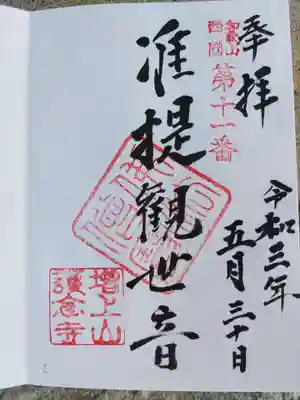 奉拝
和歌山
西國
第十一番
准提觀世音
令和三年
五月三十日
增上山
護念寺